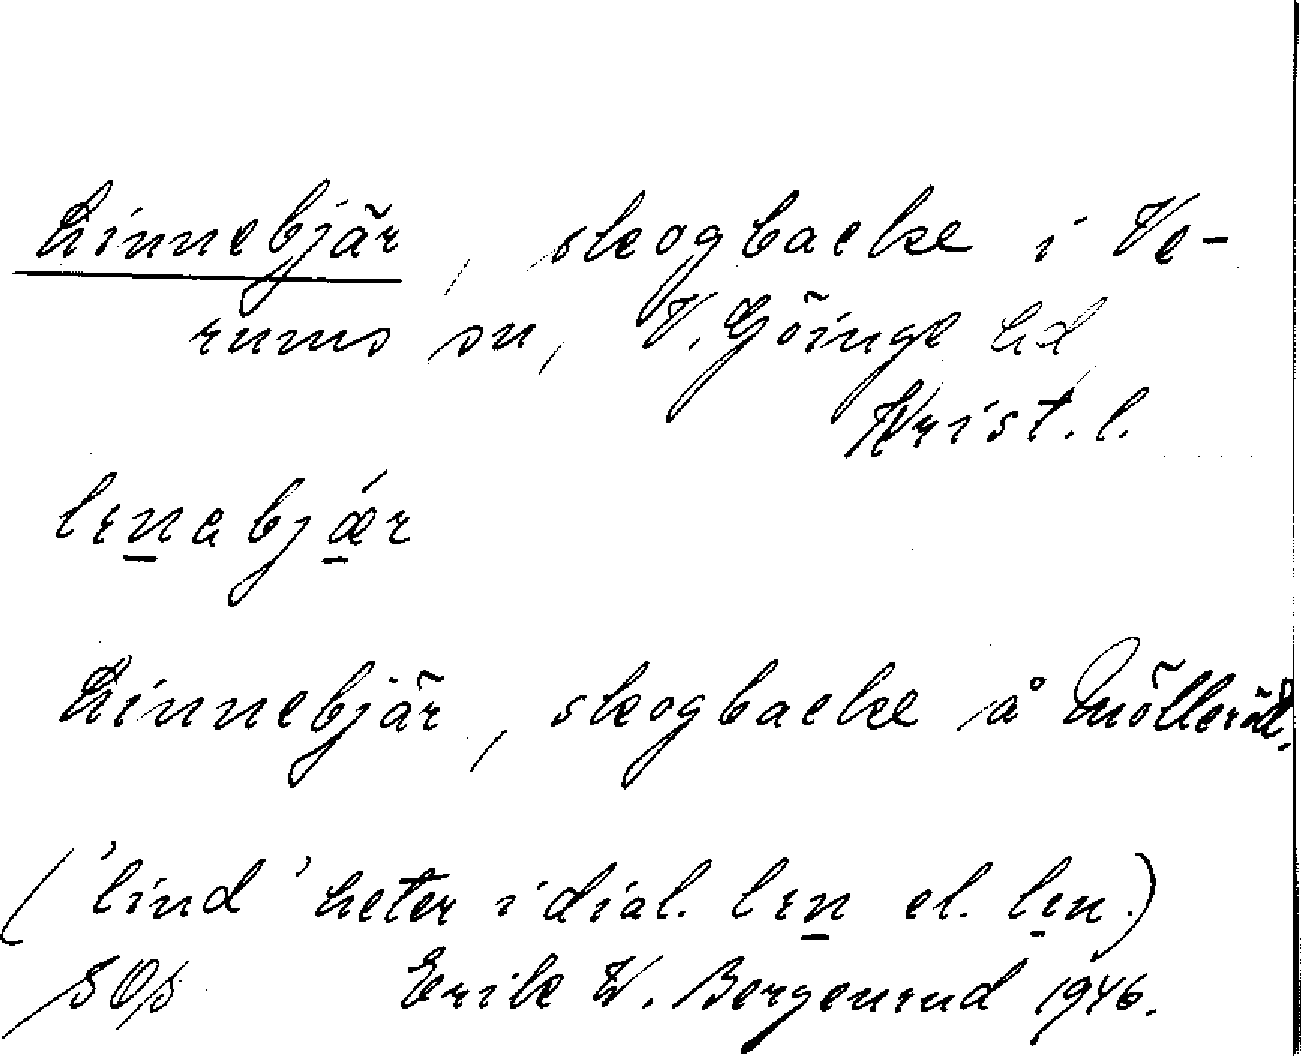 Linnebjär, skogbacke i Ve-
rums sn, V. Göinge hd
Krist. l.
lɪnabjǽr
Linnebjär, skogbacke å Mölleröd.
('lind' heter i dial. lɪn el. lɪn.)
SOÅ Erik W. Bergenrud 1946.